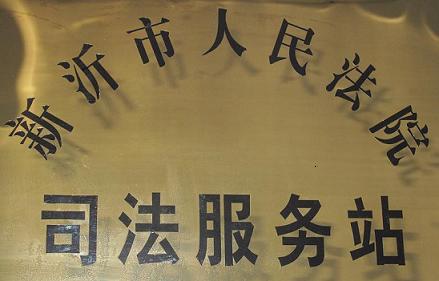 新沂市人民法院
司法服务站